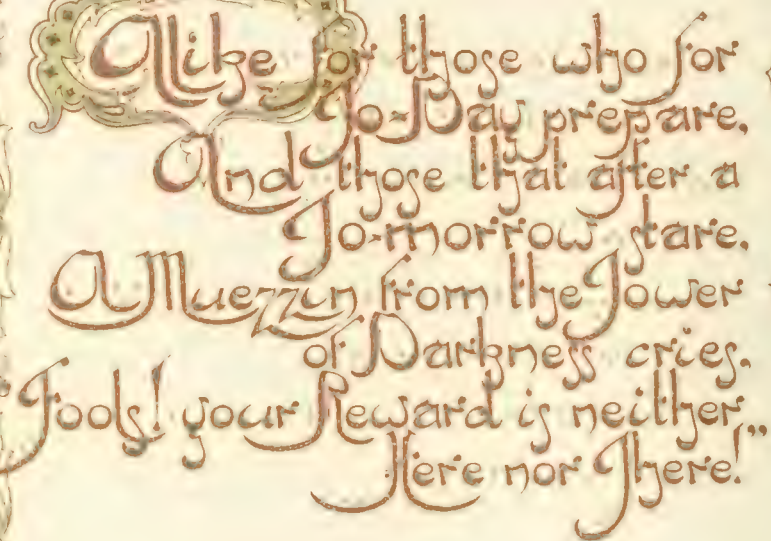 Alike for those who for
To-Day prepare,
And those that after a
To-morrow stare,
A Muezzin from the Tower
of Darkness cries,
Fools! your Reward is neither
Here nor There!"